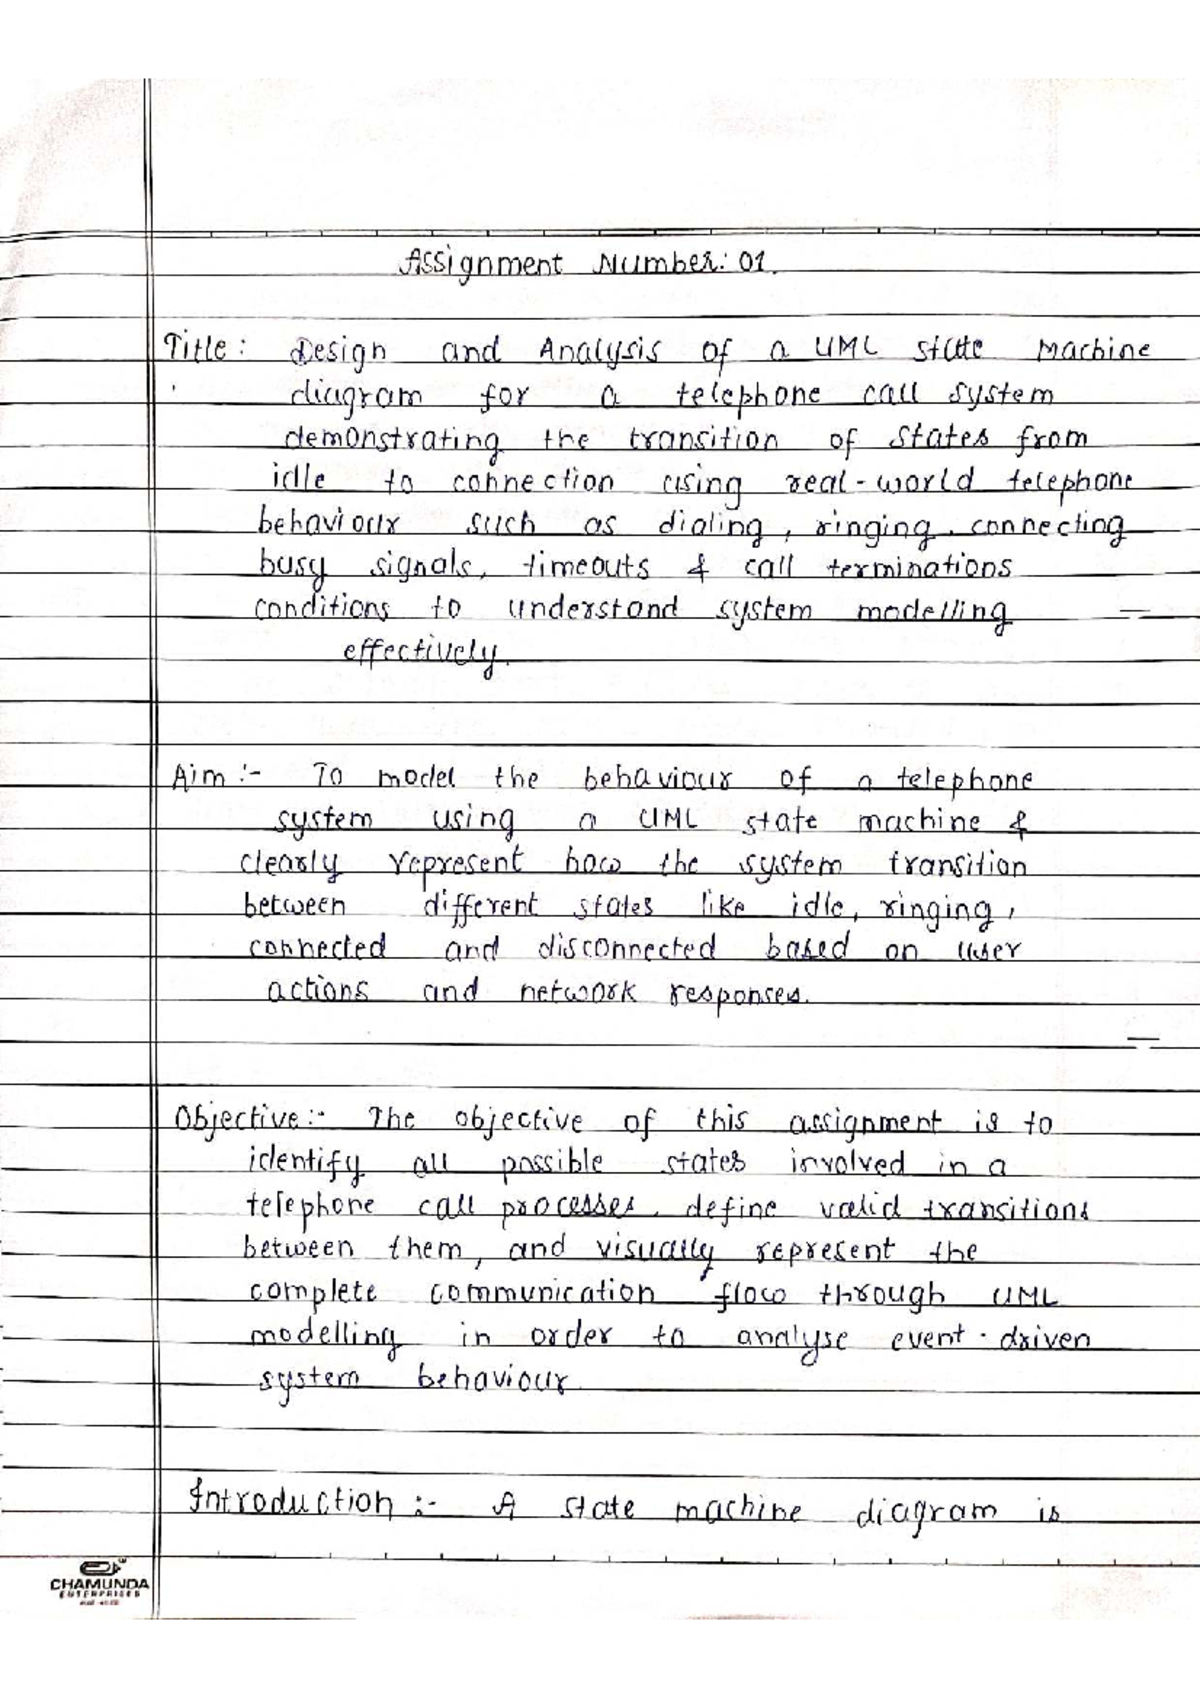 Assignment Number: 01.
Title: Design and Analysis of a UML state Machine
diagram for a telephone call system
demonstrating the transition of states from
idle to connection using real-world telephone
behaviour such as dialing, ringing, connecting
busy signals, timeouts & call terminations
conditions to understand system modelling
effectively.
Aim :- To model the behaviour of a telephone
system using a UML state machine &
clearly represent how the system transition
between different states like idle, ringing,
connected and disconnected based on user
actions and network responses.
Objective:- The objective of this assignment is to
identify all possible states involved in a
telephone call processes, define valid transitions
between them, and visually represent the
complete communication flow through UML
modelling in order to analyse event-driven
system behaviour
Introduction :- A state machine diagram is
CHAMUNDA
ENTERPRISES